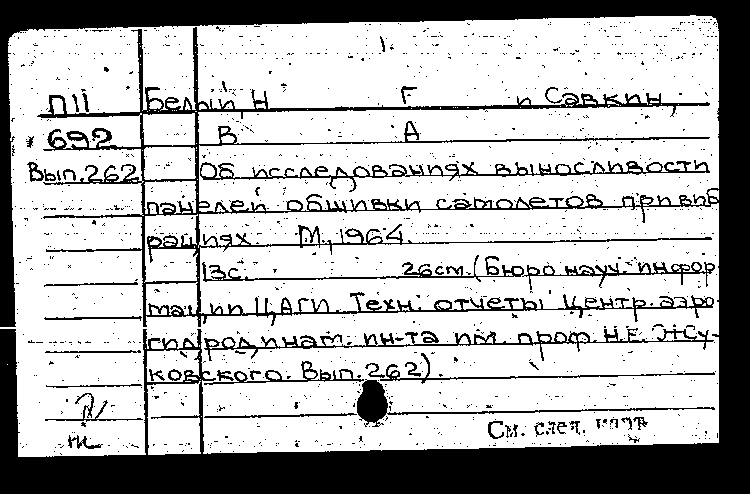 1.
П11 Белый, Н Г и Савкин,
692 В А
Вып.262 Об исследованиях выносливости
панелей обшивки самолетов при виб
рациях. М., 1964.
13с. 26см. (Бюро науч. инфор
мации ЦАГИ. Техн. отчеты Центр. аэро
гидродинам. ин-та им. проф. Н.Е. Жу-
ковского. Вып.262).
См. след.